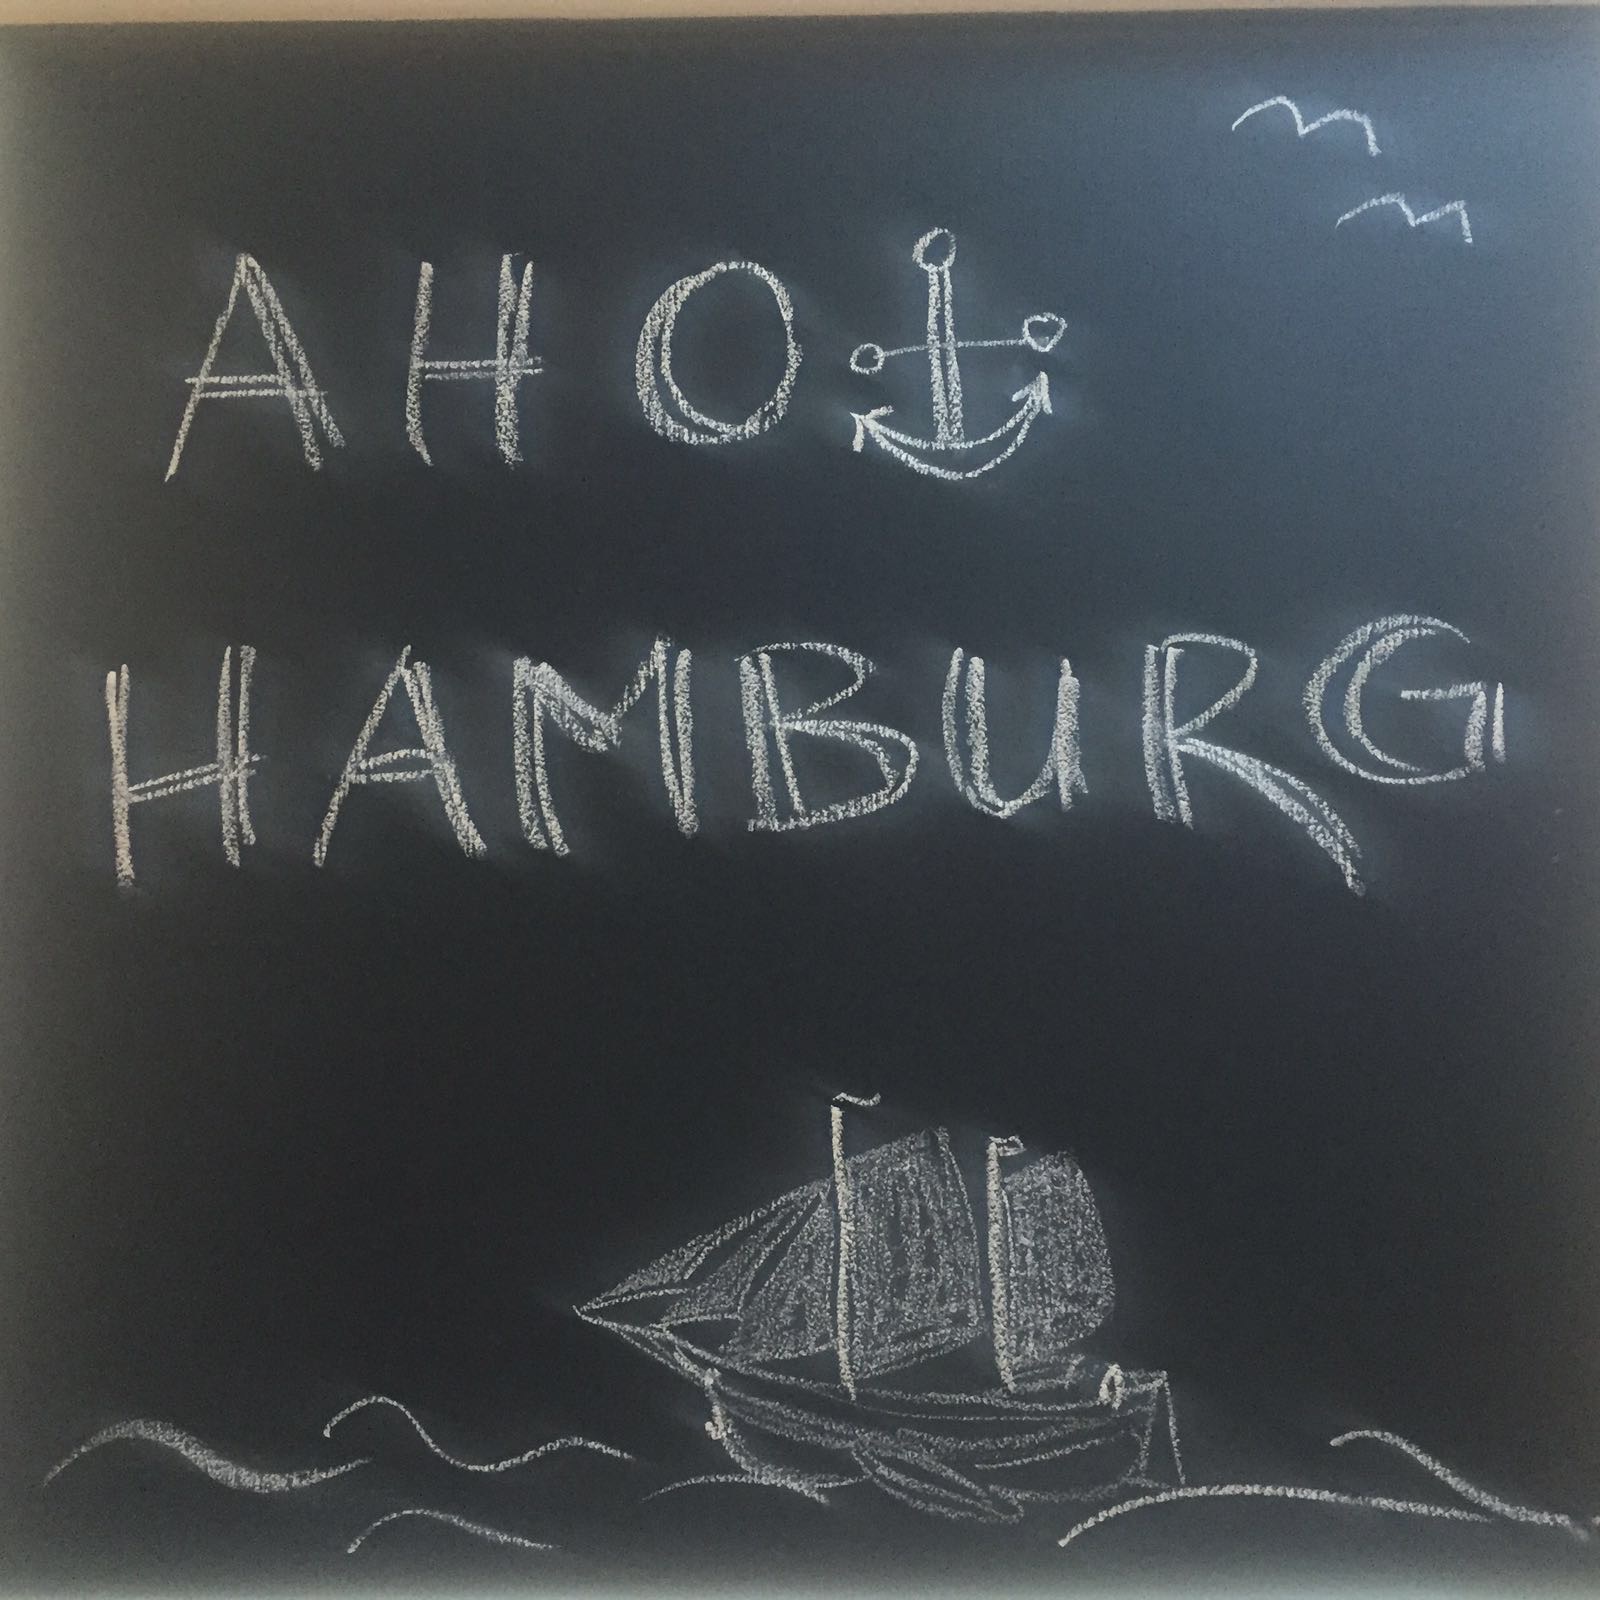 AHO⚓
HAMBURG